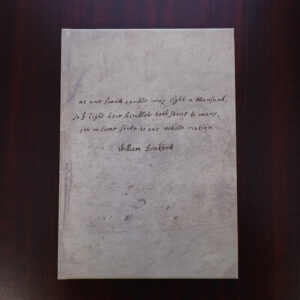 as one small candle may light a thousand,
so ye light here kindled hath shone to many,
yea in some sorte to our whole nation
William Bradford